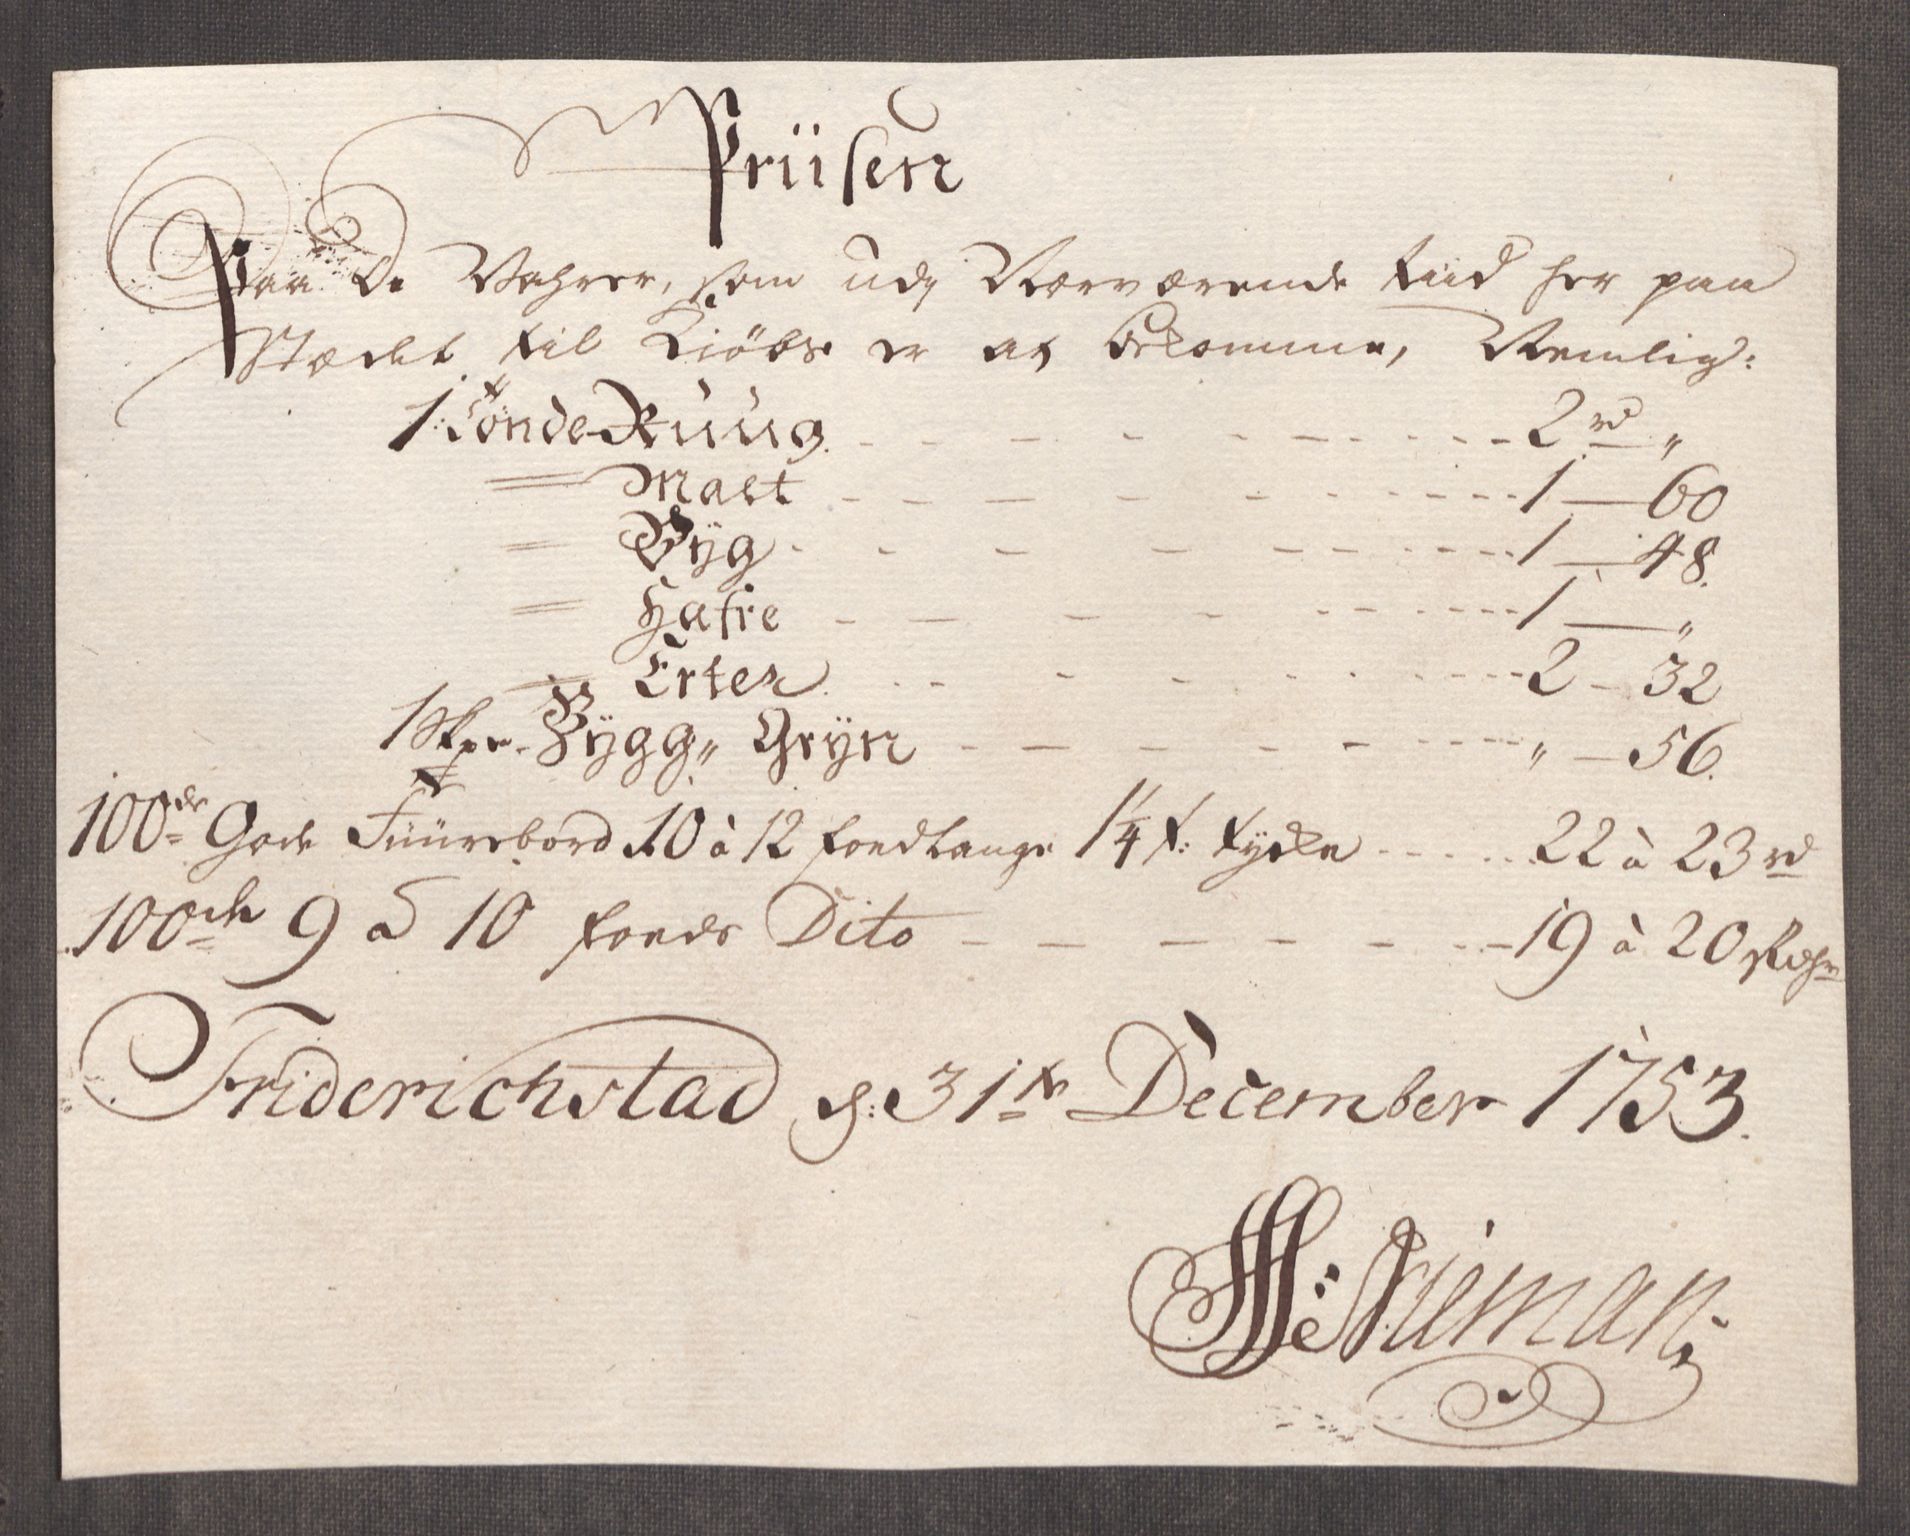 Priisen
Paa de Vahrer, som udj Nærværende tiid her paa
Stædet til Kiöbs er at bekomme, Nemlig:
1 Tönde Ruug. - - - 2 rd "
= Malt - - - 1 — 60
= Byg - - - 1 — 48.
= Hafre - - - 1 — "
= Erter - - - 2 — 32
1 Skpe. Bygg" Gryn - - - " — 56.
100de Gode Fuurebord 10 à 12 foed Lange 1 1/4 t: tycke - - - 22 à 23 rd
100de 9 à 10 foeds Dito - - - 19 à 20 Rdhr
Friderichstad d: 31te December 1753.